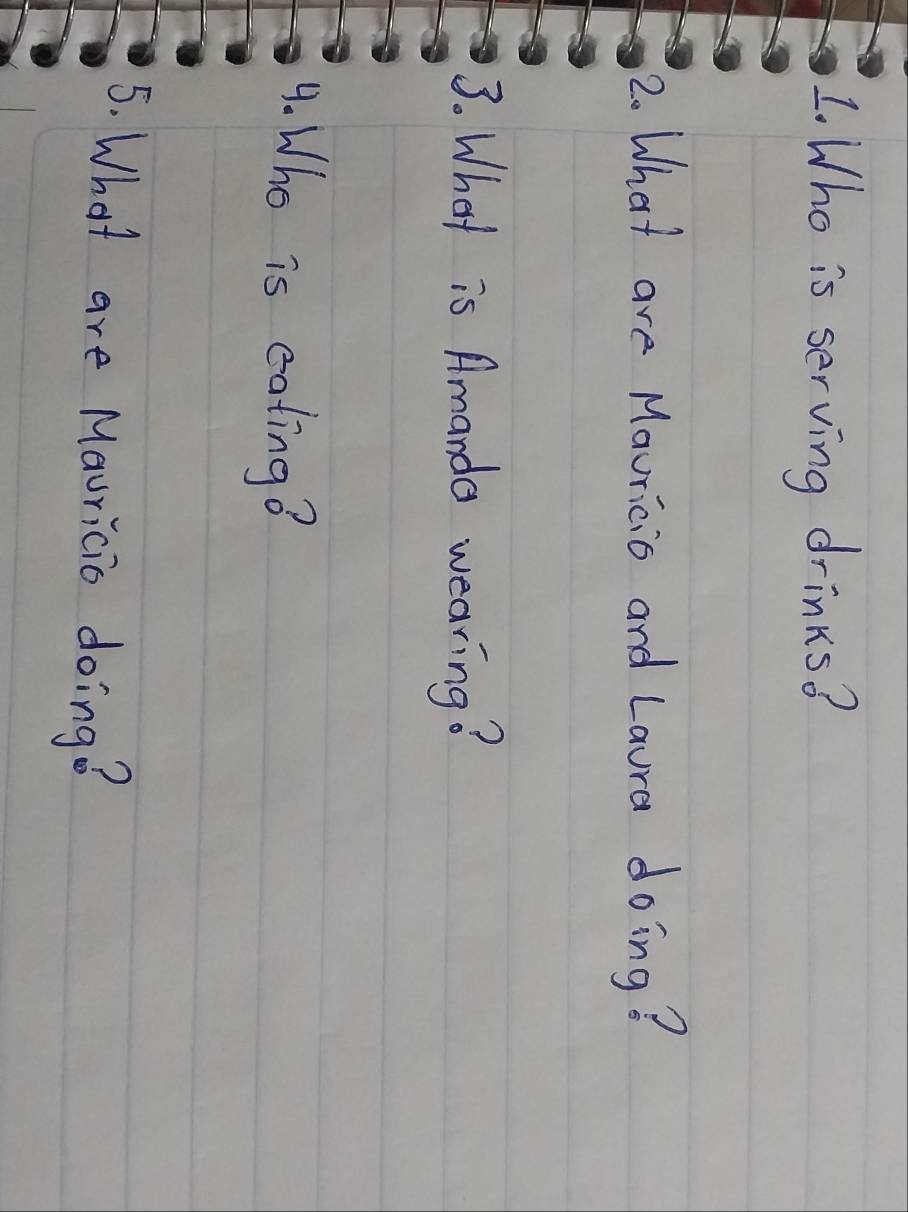 1. Who is serving drinks?
2. What are Mauricio and Laura doing?
3. What is Amanda wearing?
4. Who is eating?
5. What are Mauricio doing?